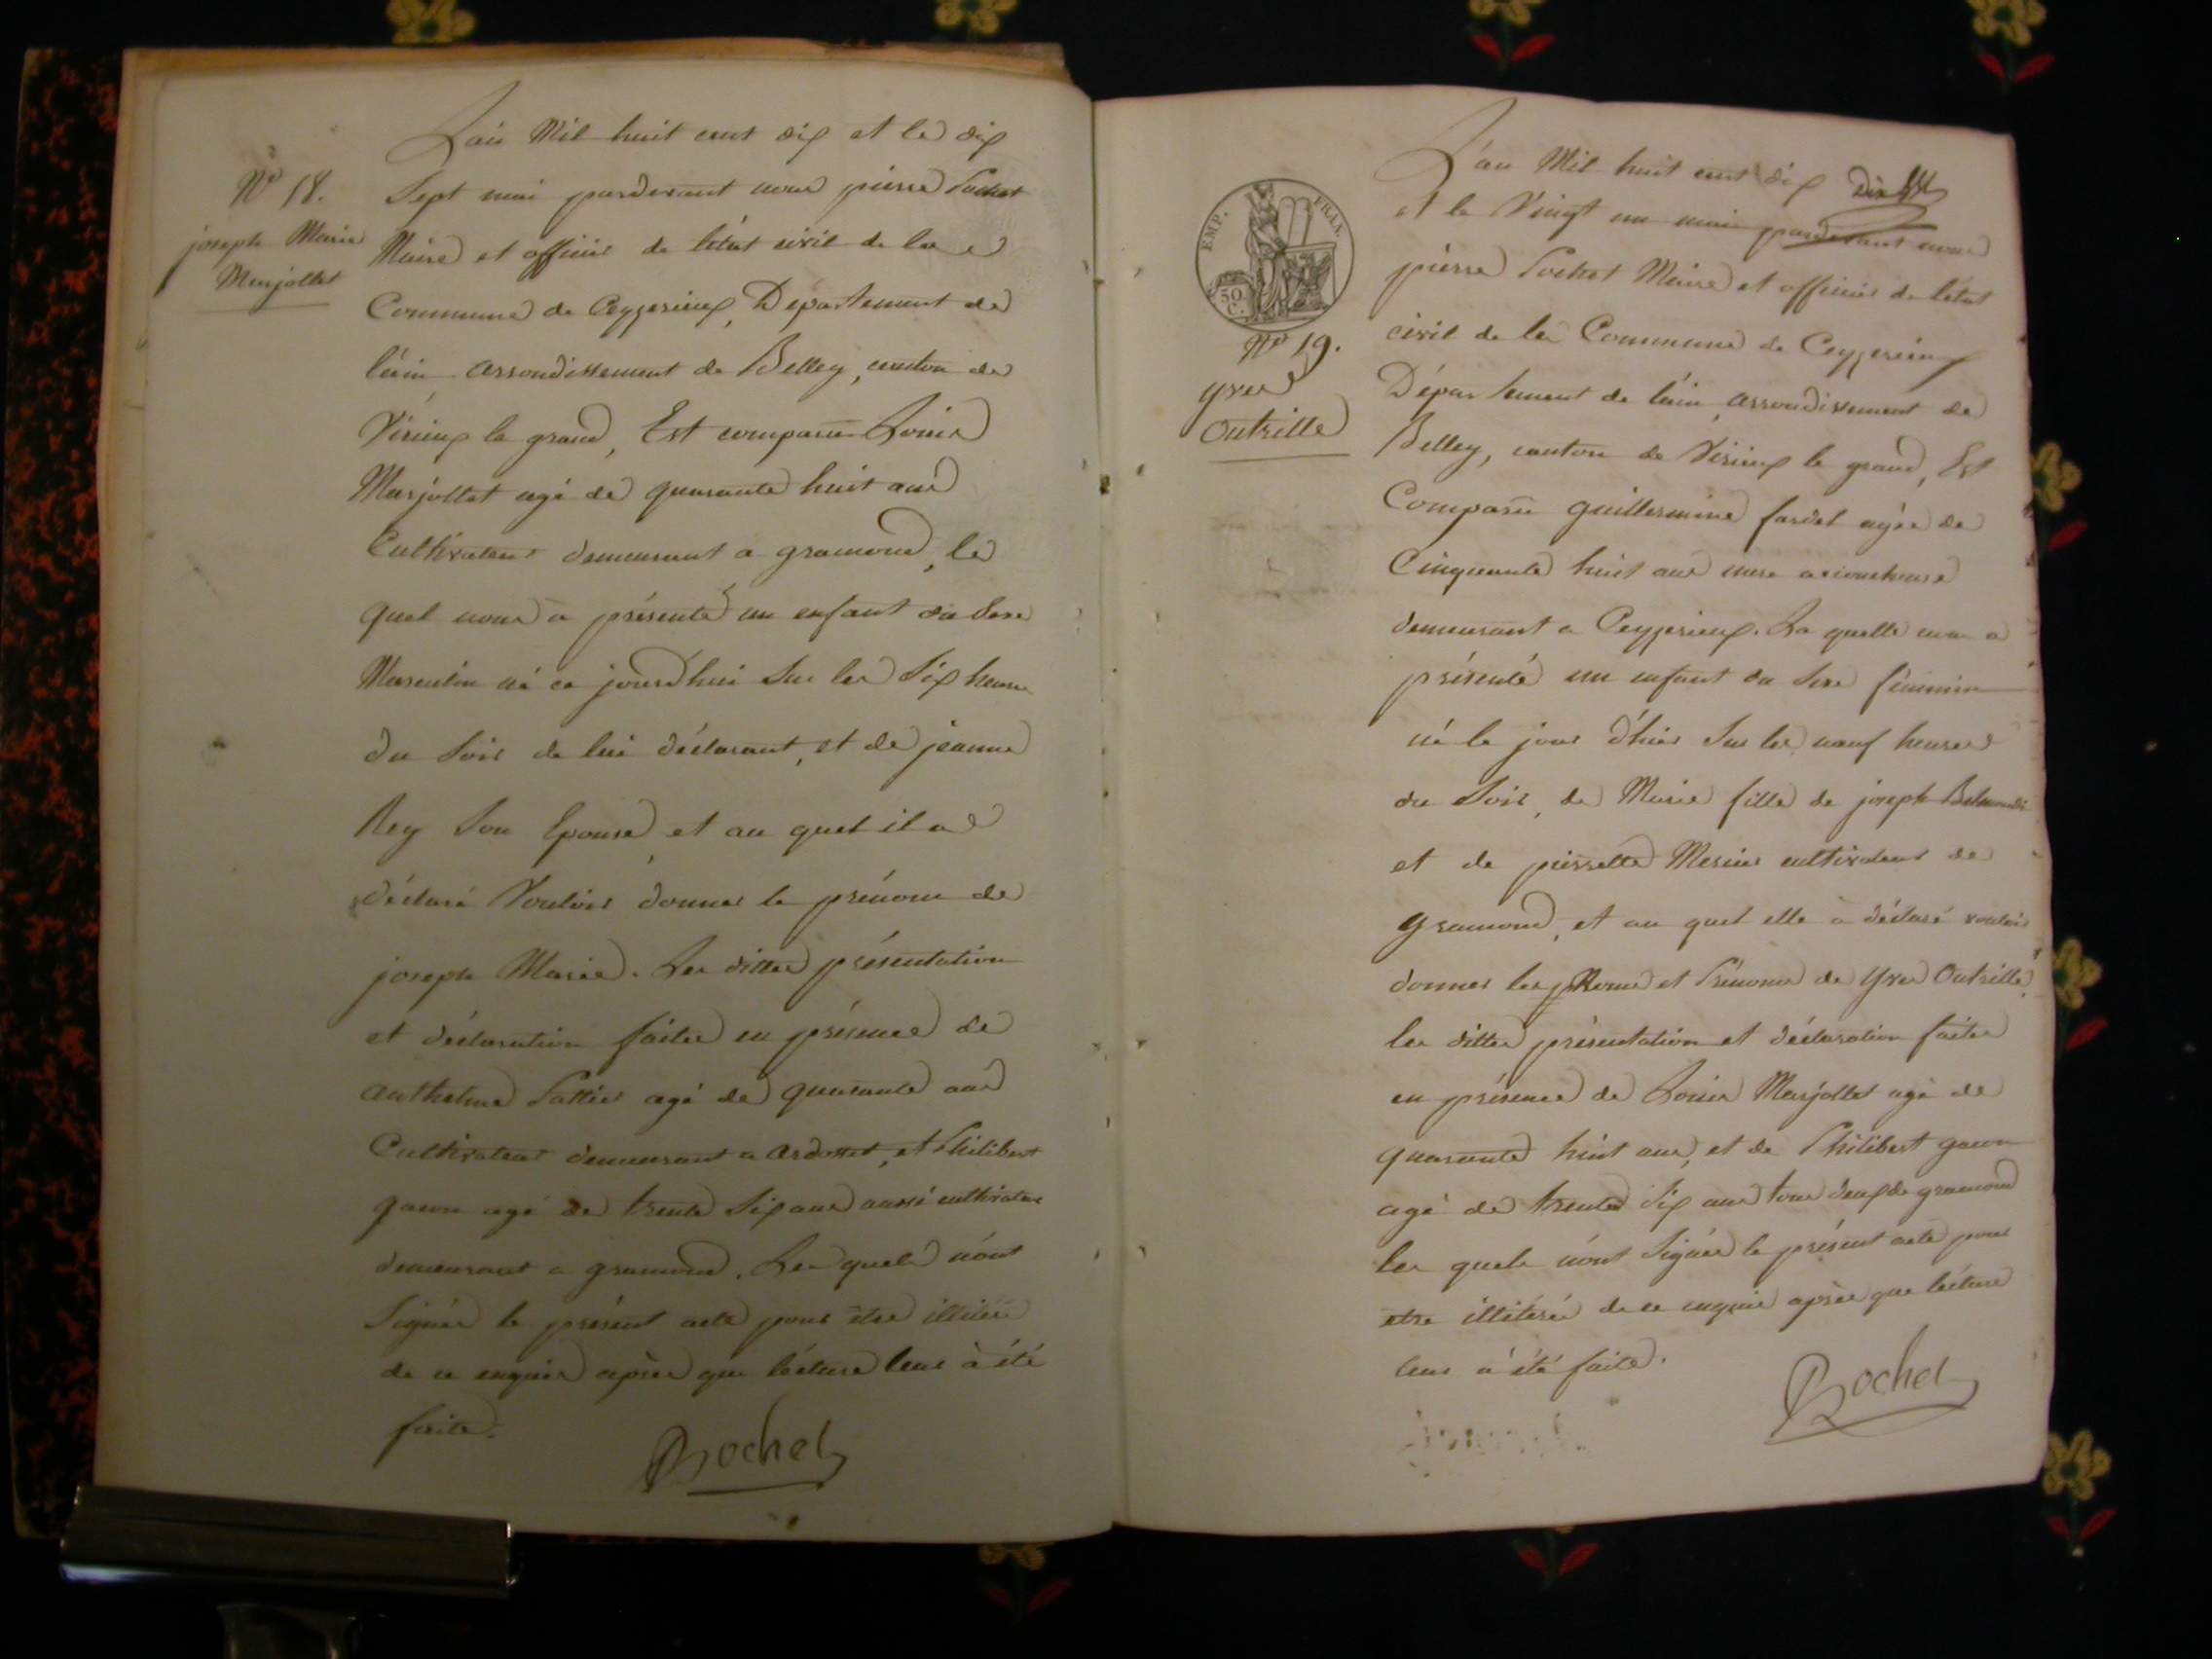 N° 18.
joseph Marie
Marjollet
L'an Mil huit cent dix et le dix
Sept mai pardevant nous pierre Pochet
Maire et officier de l'état civil de la
Commune de Ceyzerieux, Departement de
l'ain arrondissement de Belley, canton de
Virieux le grand, Est comparu Louis
Marjollet agé de quarante huit ans
Cultivateur demeurant a gramond, le
quel nous a présenté un enfant du Sexe
Masculin né ce jourd'hui Sur les Six heures
du Soir de lui déclarant, et de jeanne
Rey Son Epouse et au quel il a
déclaré Vouloir donner le prénom de
joseph Marie. Les dittes présentation
et déclaration faites en présence de
anthelme Pattier agé de quarante ans
Cultivateur demeurant a ardosset, et Philibert
gacon agé de trente Six ans aussi cultivateur
demeurant a gramond. Les quels n'ont
Signés le présent acte pour être illitéré
de ce enquis après que lécture leur à été
faite.
Pochet
EMP. FRAN.
50
C.
N° 19.
yves
Outrille
L'an Mil huit cent dix
et le Vingt un mai pardevant nous
pierre Pochet Maire et officier de l'état
civil de la Commune de Ceyzerieux
Département de l'ain, arrondissement de
Belley, canton de Virieux le grand, Est
Comparu guillermine fardet agée de
Cinquante huit ans mere accoucheuse
demeurant a Ceyzerieux. La quelle nous a
présenté un enfant du Sexe féminin
né le jour d'hier Sur les neuf heures
du Soir, de Marie fille de joseph
et de pierrette Mercier cultivateur de
gramond, et au quel elle à déclaré vouloir
donner les Noms et Prénoms de yves Outrille,
les dittes présentation et déclaration faites
en présence de Louis Marjollet agé de
quarante huit ans, et de Philibert gacon
agé de trente Six ans tous deux de gramond
les quels n'ont Signés le présent acte pour
etre illitéré de ce enquis après que lécture
leur à été faite.
Pochet